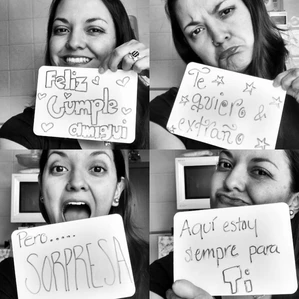 Feliz
Cumple
amigui
Te
quiero &
extraño
Pero.....
SORPRESA
Aquí estoy
siempre para
Ti